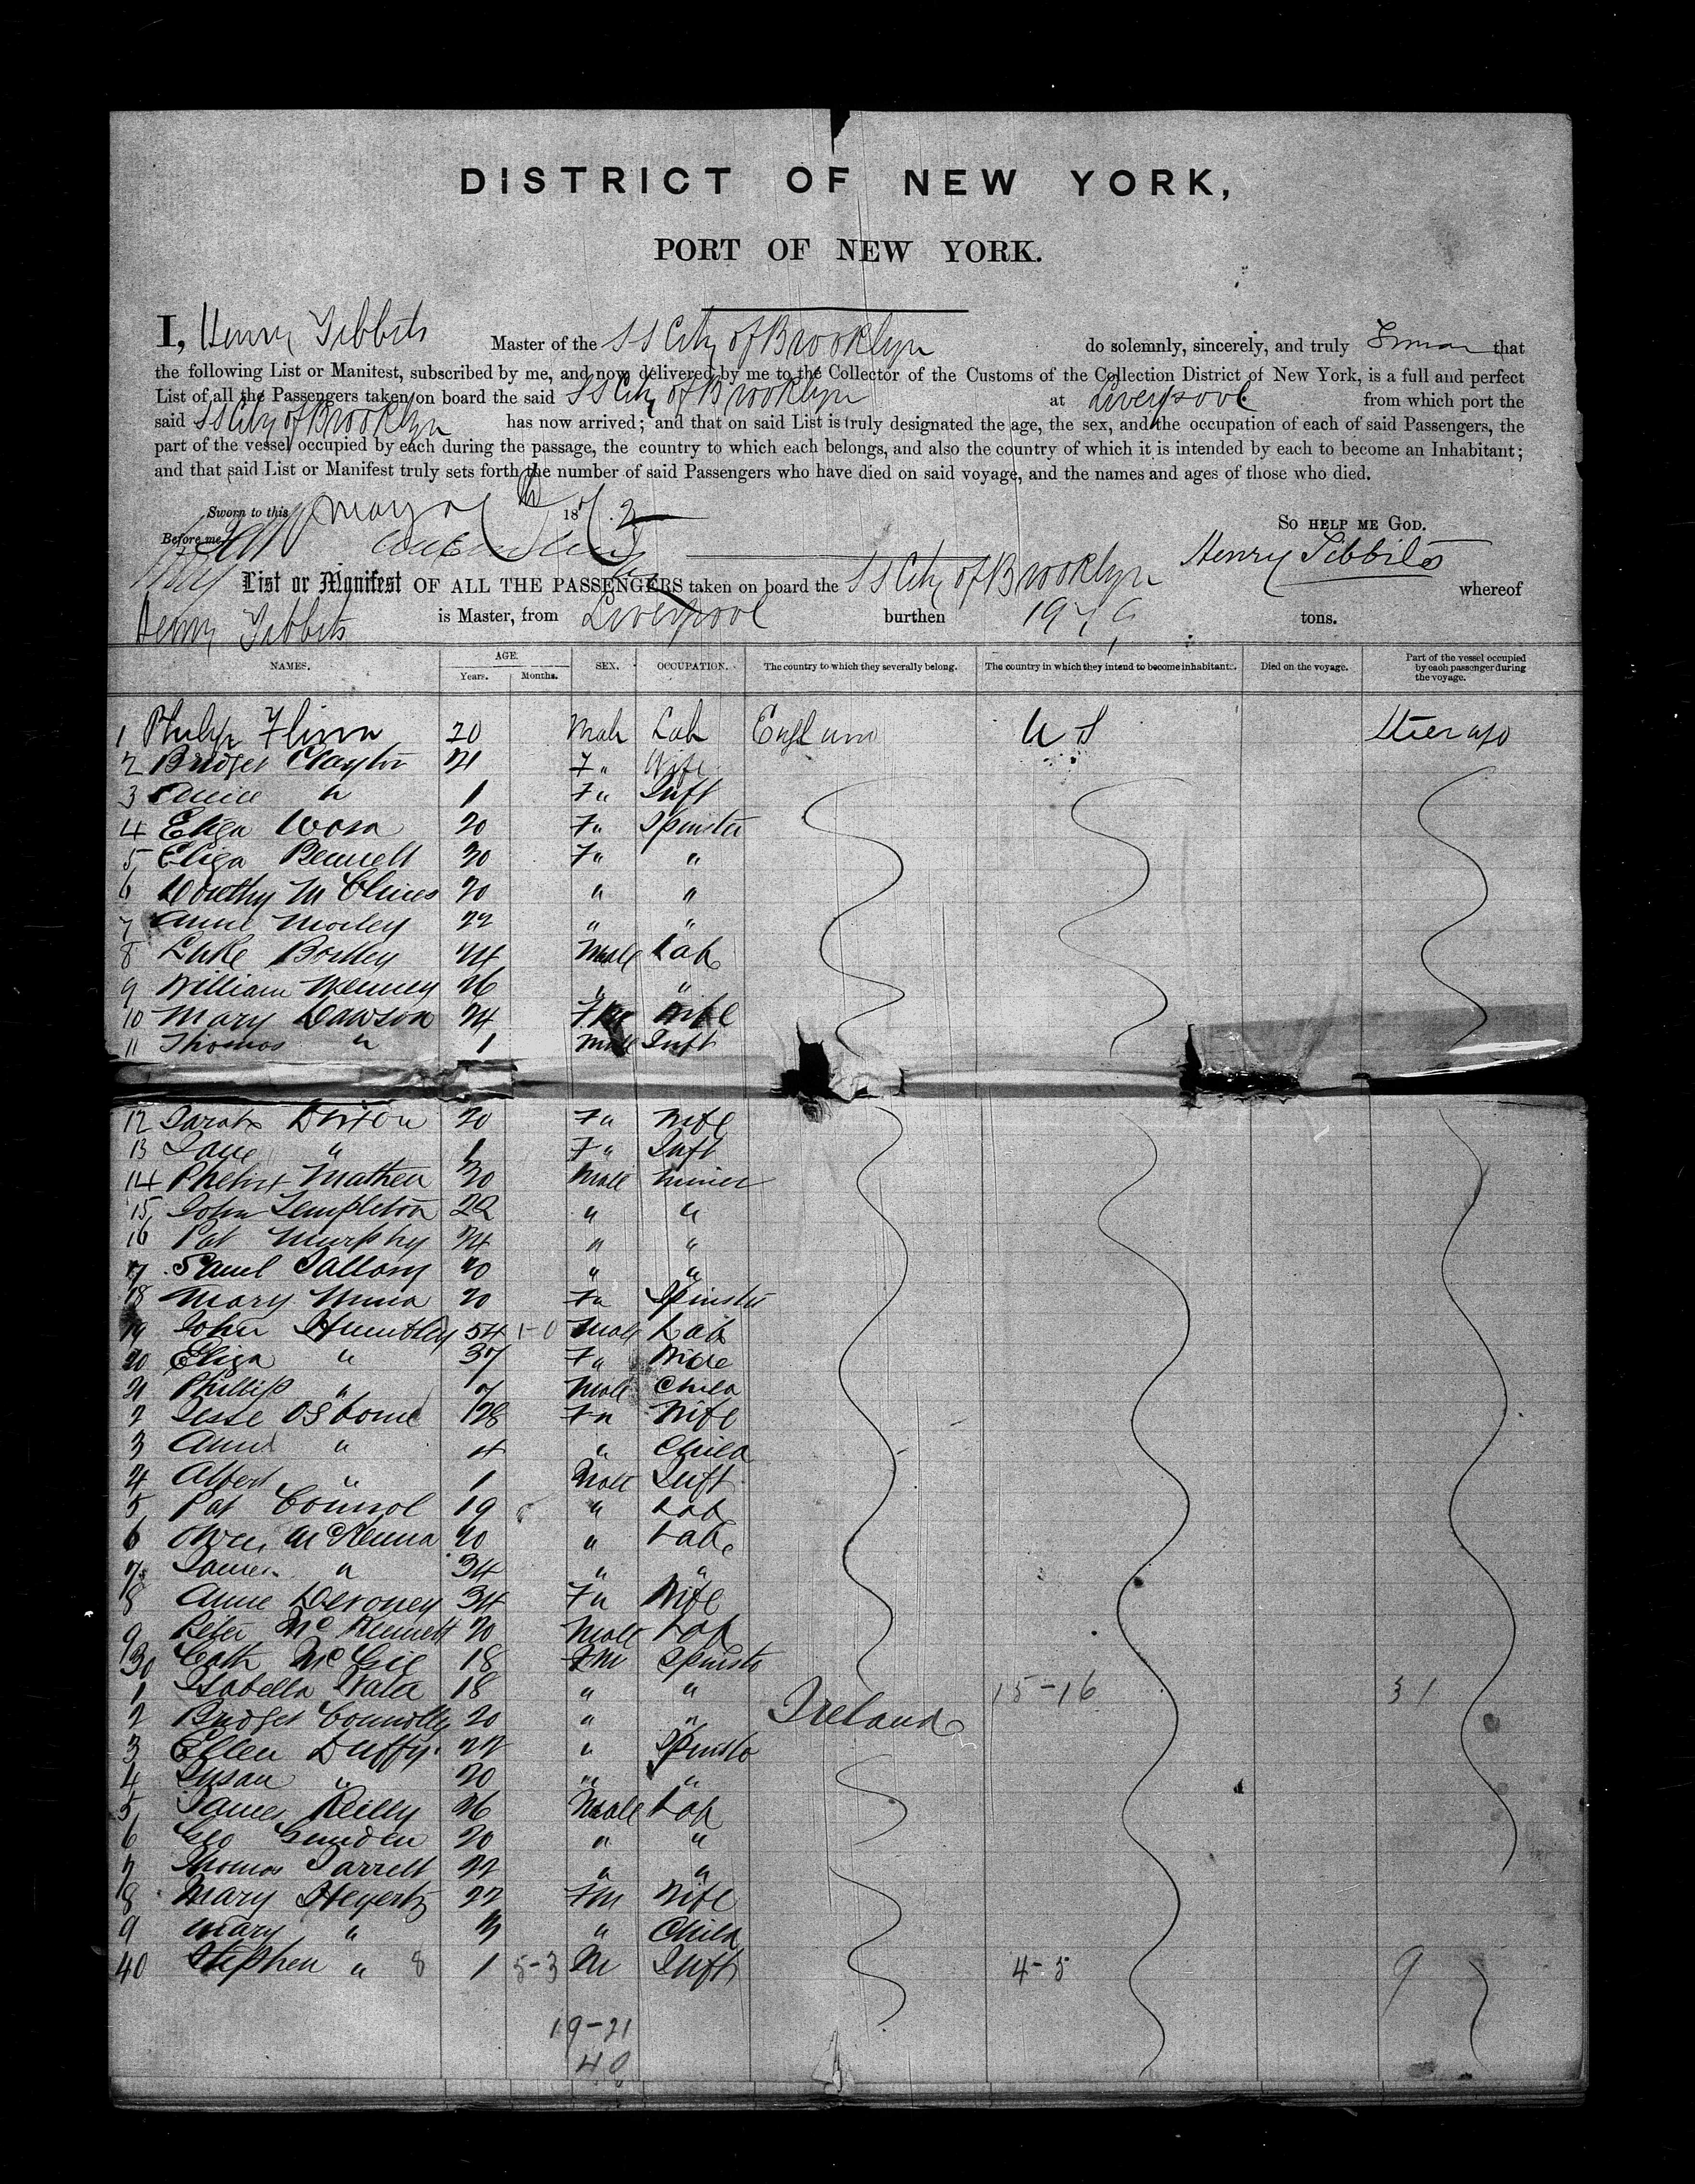 DISTRICT OF NEW YORK,
PORT OF NEW YORK.
I, Henry Tibbits Master of the SS City of Brooklyn do solemnly, sincerely, and truly Swear that
the following List or Manifest, subscribed by me, and now delivered by me to the Collector of the Customs of the Collection District of New York, is a full and perfect
List of all the Passengers taken on board the said SS City of Brooklyn at Liverpool from which port the
said SS City of Brooklyn has now arrived; and that on said List is truly designated the age, the sex, and the occupation of each of said Passengers, the
part of the vessel occupied by each during the passage, the country to which each belongs, and also the country of which it is intended by each to become an Inhabitant;
and that said List or Manifest truly sets forth the number of said Passengers who have died on said voyage, and the names and ages of those who died.
Sworn to this May 1872
So help me God.
Before me
Henry Tibbits
List or Manifest OF ALL THE PASSENGERS taken on board the SS City of Brooklyn whereof
Henry Tibbits is Master, from Liverpool burthen tons.
NAMES. AGE. Years. Months. SEX. OCCUPATION. The country to which they severally belong. The country in which they intend to become inhabitants. Died on the voyage. Part of the vessel occupied by each passenger during the voyage.
1 Philip Flinn 20 Male Lab England U S
2 Bridget Clayton 21 F" Wife
3 " 1 F" Inft
4 Eliza 20 F" Spinster
5 Eliza Bennett 30 F" "
6 Dorothy 20 " "
7 Morley 22 " "
8 Luke 24 Male Lab
9 William Kenney 26 " "
10 Mary Dawson 24 Fm Wife
11 Thomas " 1 Male Inft
12 Sarah 20 Fm Wife
13 Jane " 1 F" Inft
14 30 Male Miner
15 John Templeton 22 " "
16 Pat Murphy 24 " "
17 Saml 20 " "
18 Mary 20 Fm Spinster
19 John 54 1-0 Male Lab
20 Eliza " 37 F" Wife
21 Phillip " 7 Male Child
2 Jesse Osborne 28 Fm Wife
3 " 4 " Child
4 Albert " 1 Male Inft
5 Pat 19 " Lab
6 Owen McKenna 20 " Lab
7 James " 34 " "
8 Anne 34 Fm Wife
9 Peter 20 Male Lab
30 Cath McGee 18 Fm Spinstr
1 Isabella 18 " " 15-16 31
2 Bridget Connolly 20 " " Ireland
3 Ellen Duffy 22 " Spinstr
4 Susan " 20 " "
5 James Reilly 26 Male Lab
6 Geo 20 " "
7 Thomas 22 " "
8 Mary 22 Fm Wife
9 Mary " 3 " Child
40 Stephen " 8 1 5-3 M Inft 4-5 9
19-21
40